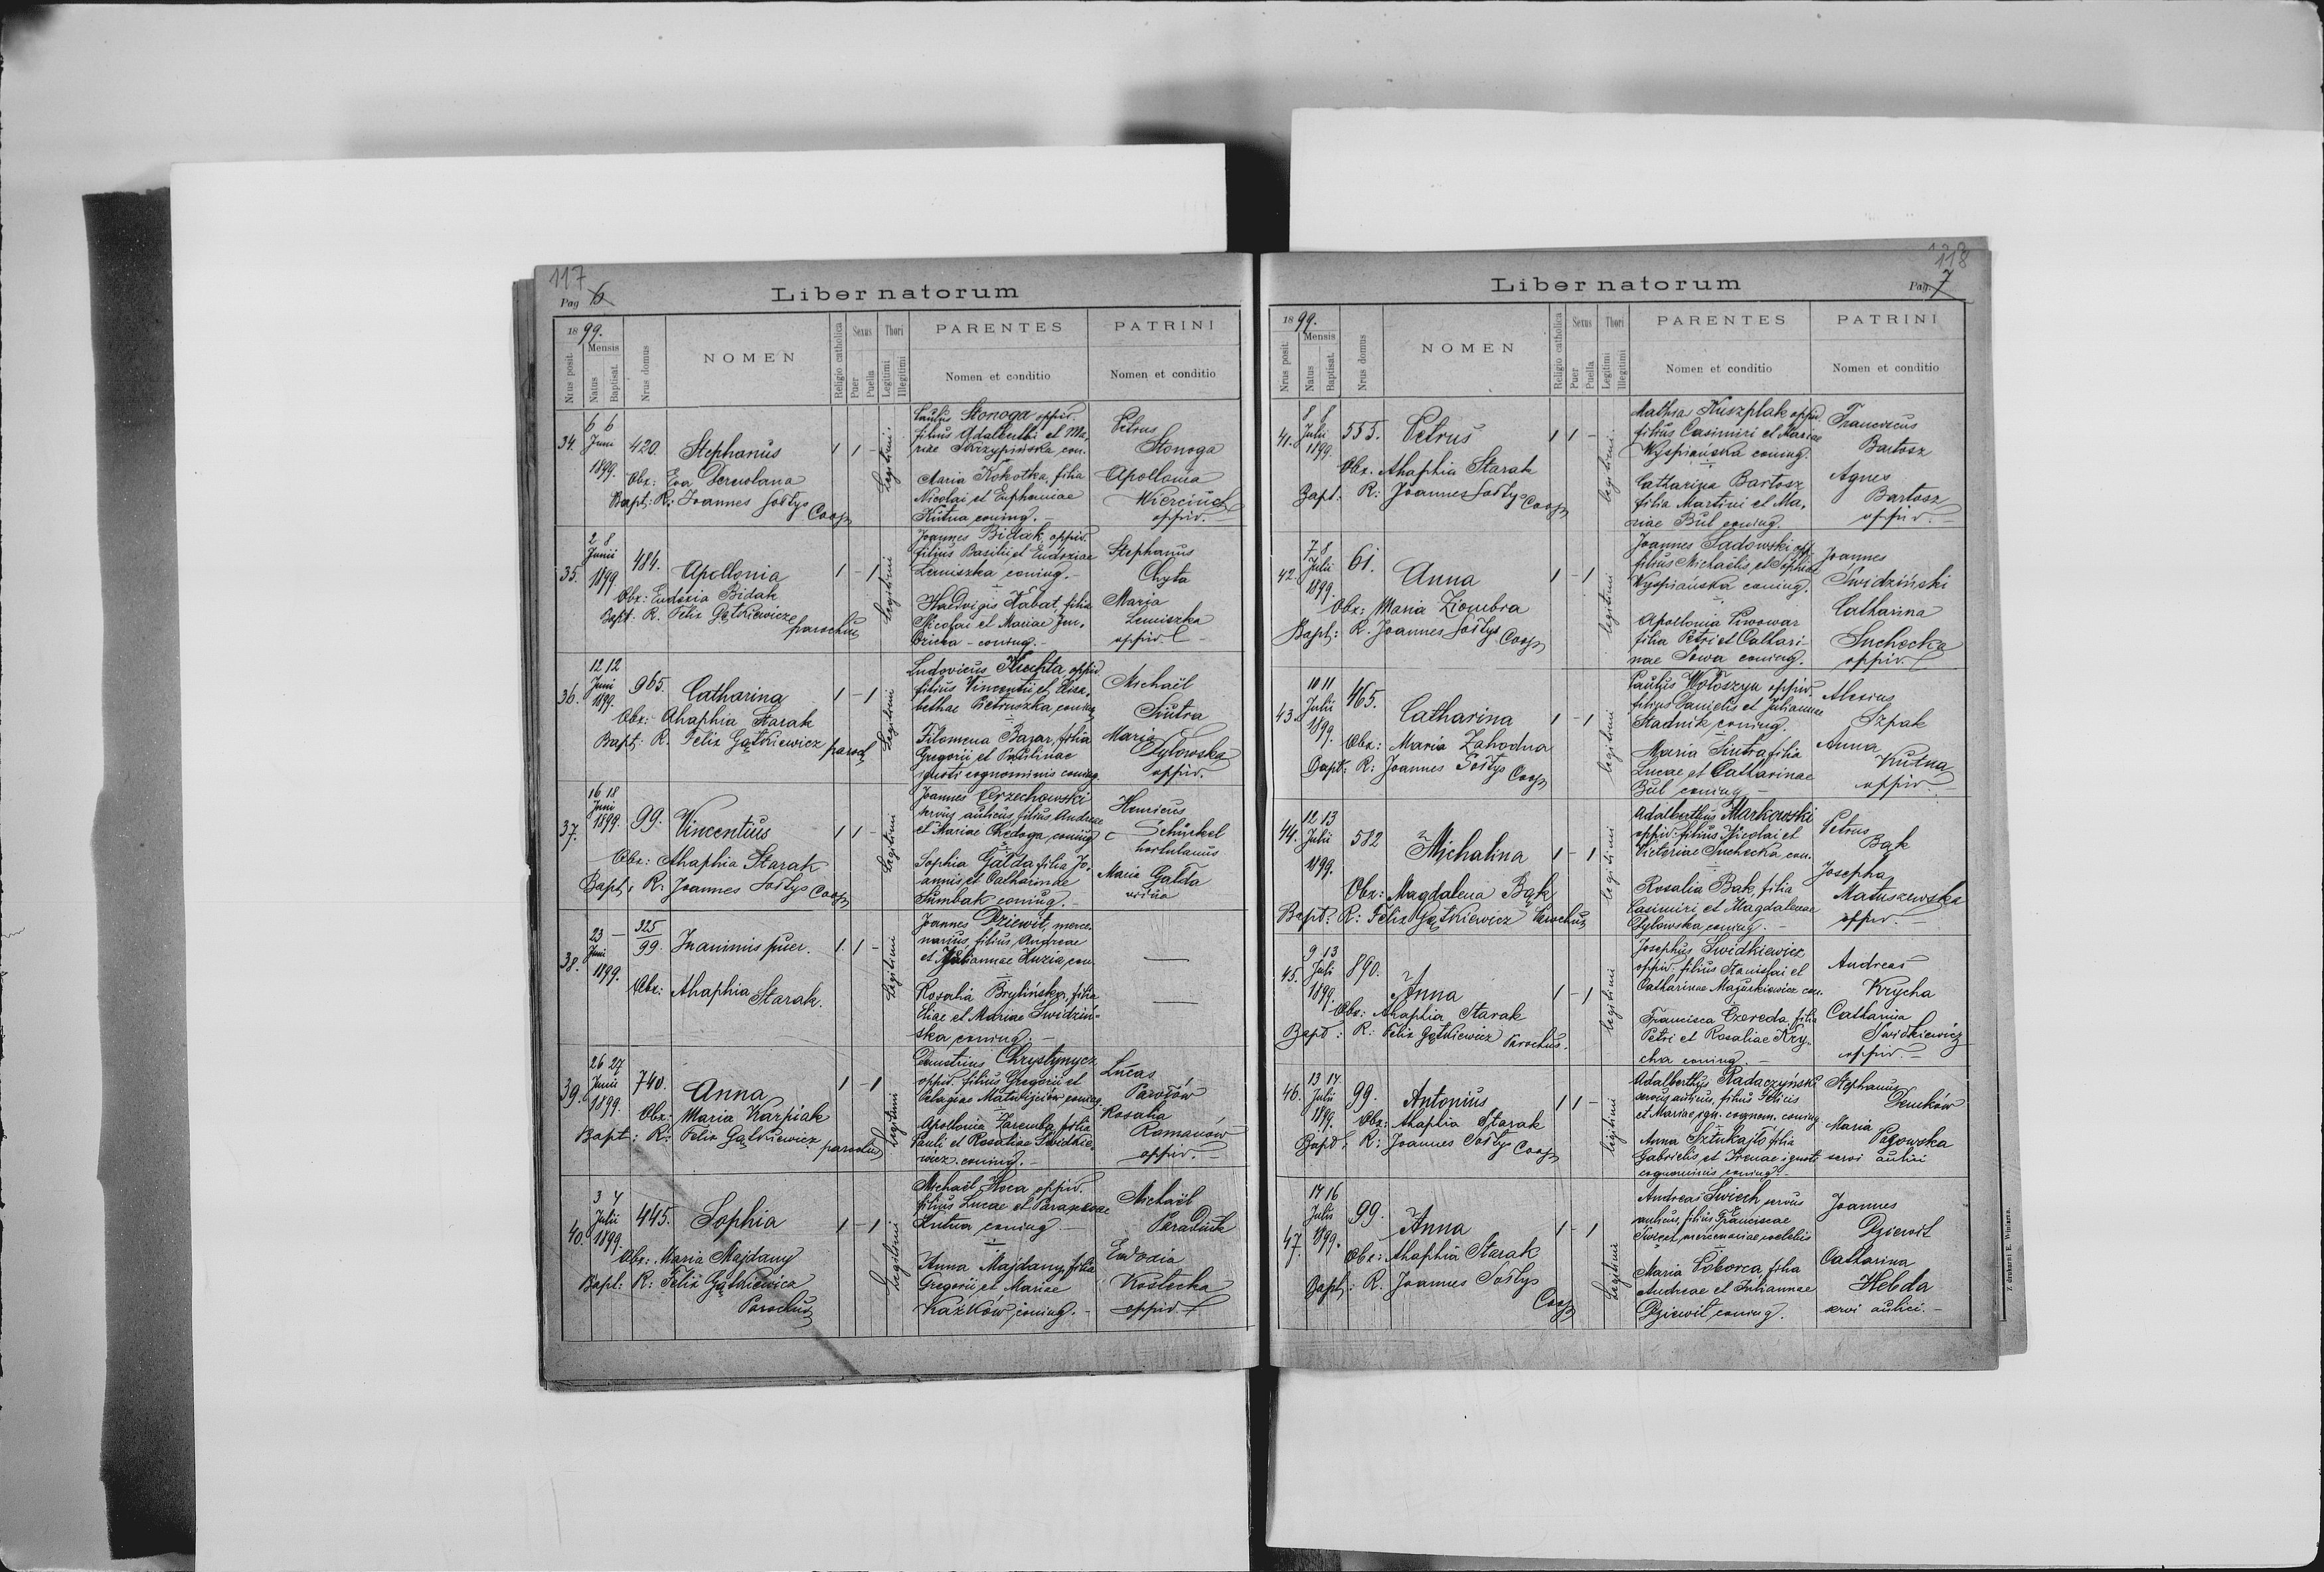 117
Pag 6
Liber natorum
1899.
Nrus posit.
Mensis
Natus
Baptisat.
Nrus domus
NOMEN
Religio catholica
Sexus
Puer
Puella
Thori
Legitimi
Illegitimi
PARENTES
Nomen et conditio
PATRINI
Nomen et conditio
34.
6 6
Juni
1899.
420.
Stephanus
1 1 -
Legitimi.
Obx: Eva
Bapt: R. Joannes Sołtys Coop
Paulus Stonoga oppid.
filius Adalberti et Ma-
riae Skrzypińska con.
Maria Kokotka, filia
Nicolai et Euphemiae
Kutna coniug. -
Petrus
Stonoga
Apollonia
Wierciuch
oppid. -
35.
2 8
Junii
1899
484.
Apollonia
1 - 1
Legitimi
Obx: Eudoxia Bidak
Bapt. R. Felix Gątkiewicz parochus
Joannes Bidak oppid.
filius Basilii et Eudoxiae
Lemiszka coniug. -
Hedvigis Habat, filia
Nicolai et Mariae
coniug. -
Stephanus
Chyta
Maria
Lemiszka
oppid.
36.
12 12
Juni
1899.
965.
Catharina
1 - 1
Legitimi
Obx: Ahaphia Starak
Bapt: R. Felix Gątkiewicz paroch
Ludovicus oppid
filius Vincentii et Elisa-
bethae Pietruszka coniug
Filomena Bazar, filia
Gregorii et Paulinae
ignoti cognominis coniug.
Michaël
Siutra
Maria
Pytowska
oppid.
37.
16 18
Juni
1899.
99.
Vincentius
1 1 -
Legitimi
Obx: Ahaphia Starak
Bapt: R. Joannes Sołtys Coop
Joannes Orzechowski
servus aulicus, filius Andreae
et Mariae Chedoga coniug
Sophia Gałda filia Jo-
annis et Catharinae
Sumbak coniug. -
Henricus
Schinkel
hortulanus
Maria Gałda
vidua
38.
23 -
Juni
1899.
325
99.
Inanimis puer.
1. 1 -
Legitimi
Obx: Ahaphia Starak.
Joannes Dziewit, merce-
narius, filius Andreae
et Juliannae Kuzia, con.
Rosalia Brylińska, filia
Eliae et Mariae Swidziń-
ska coniug. -
39.
26 27
Junii
1899.
740.
Anna
1 - 1
Legitimi
Obx: Maria Karpiak
Bapt: R: Felix Gątkiewicz parochus
Demetrius Chrystynycz
oppid. filius Gregorii et
Pelagiae Matwijciów coniug.
Apollonia Zaremba filia
Pauli et Rosaliae Swidkie-
wicz coniug. -
Lucas
Rosalia
Romanów
oppid. -
40.
3 4
Julii
1899.
445.
Sophia
1 - 1
Legitimi
Obx: Maria Majdany
Bapt: R: Felix Gątkiewicz
Parochus
Michaël Hoca oppid.
filius Lucae et Parascevae
Kutna coniug. -
Anna Majdany, filia
Gregorii et Mariae
Kazków coniug. -
Michaël
Paradiuk
Eudoxia
Kostecka
oppid.
118
Pag. 7
Liber natorum
1899.
Nrus posit.
Mensis
Natus
Baptisat.
Nrus domus
NOMEN
Religio catholica
Sexus
Puer
Puella
Thori
Legitimi
Illegitimi
PARENTES
Nomen et conditio
PATRINI
Nomen et conditio
41.
8 8
Julii
1899.
553.
Petrus
1 1 -
legitimi.
Obx. Ahaphia Starak
Bapt: R: Joannes Sołtys Coop
Mathia Kuszplak oppid.
filius Casimiri et Mariae
Wyspiańska coniug.
Catharina Bartosz
filia Martini et Ma-
riae Bul coniug.
Franciscus
Bartosz
Agnes
Bartosz
oppid. -
42.
7 8
Julii
1899.
61.
Anna
1 - 1
legitimi
Obx: Maria Ziombra
Bapt: R. Joannes Sołtys Coop
Joannes Sadowski opp.
filius Michaelis et Sophiae
Wyspiańska coniug.
Apollonia Piwowar
filia Petri et Cathari-
nae Sowa coniug.
Joannes
Świdziński
Catharina
Suchecka
oppid.
43.
10 11
Julii
1899.
465.
Catharina
1 - 1
legitimi
Obx: Maria Zahodna
Bapt: R: Joannes Sołtys Coop
Paulus Wołoszyn oppid.
filius Danielis et Juliannae
Stadnik coniug.
Maria Siutra filia
Lucae et Catharinae
Bul coniug -
Alexius
Szpak
Anna
Kutna
oppid. -
44.
12 13
Julii
1899.
582
Michalina
1 - 1
legitimi
Obx: Magdalena Bąk
Bapt: R: Felix Gątkiewicz Parochus
Adalbertus Markowski
oppid. filius Nicolai et
Victoriae Suchecka con.
Rosalia Bąk, filia
Casimiri et Magdalenae
Pytowska coniug. -
Petrus
Bąk
Josepha
Matuszewska
oppid. -
45.
9 13
Juli
1899.
890.
Anna
1 - 1
legitimi
Obx: Ahaphia Starak
Bapt: R: Felix Gątkiewicz Parochus.
Josephus Swidkiewicz
oppid. filius Stanislai et
Catharinae con.
Francisca Czereda filia
Petri et Rosaliae Kry-
cha coniug. -
Andreas
Krycha
Catharina
Swidkiewicz
oppid. -
46.
13 14
Julii
1899.
99.
Antonius
1 1 -
legitimi
Obx: Ahaphia Starak
Bapt: R: Joannes Sołtys Coop
Adalbertus Radaczyński
servus aulicus, filius Felicis
et Mariae ign. cognom. coniug.
Anna Sztukajło filia
Gabrielis et Irenae ignoti
cognominis coniug. -
Stephanus
Demków
Maria
servi aulici
47.
14 16
Julii
1899.
99.
Anna
1 - 1
Legitimi
Obx: Ahaphia Starak
Bapt: R. Joannes Sołtys
Coop
Andreas Świech servus
aulicus, filius Franciscae
Świech, mercenariae coelebis
Maria Poborca filia
Andreae et Juliannae
Dziewit coniug.
Joannes
Dziewit
Catharina
Hebda
servi aulici. -
Z drukarni E. Winiarza.